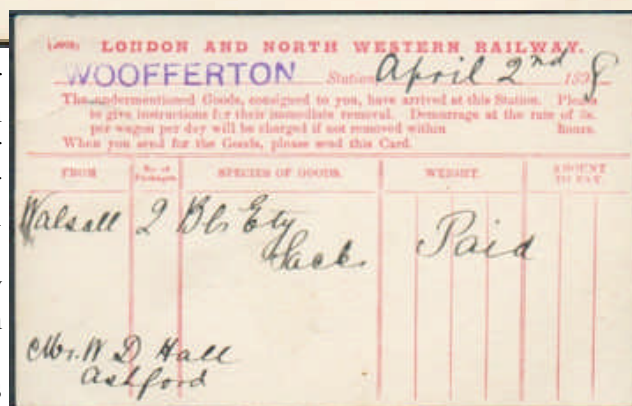 LONDON AND NORTH WESTERN RAILWAY.
WOOFFERTON Station April 2nd 1898
The undermentioned Goods, consigned to you, have arrived at this Station. Please
to give instructions for their immediate removal. Demurrage at the rate of 3s.
per wagon per day will be charged if not removed within hours.
When you send for the Goods, please send this Card.
FROM No. of Packages. SPECIES OF GOODS. WEIGHT. AMOUNT TO PAY.
Walsall 2 Bls Ety Paid
Sacks
Mr. W D Hall
Ashford